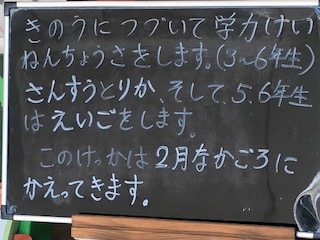 きのうにつづいて学力(けい)
ねんちょうさをします。(3~6年生)
さんすうとりか、そして、5.6年生
はえいごをします。
このけっかは2月なかごろに
かえってきます。